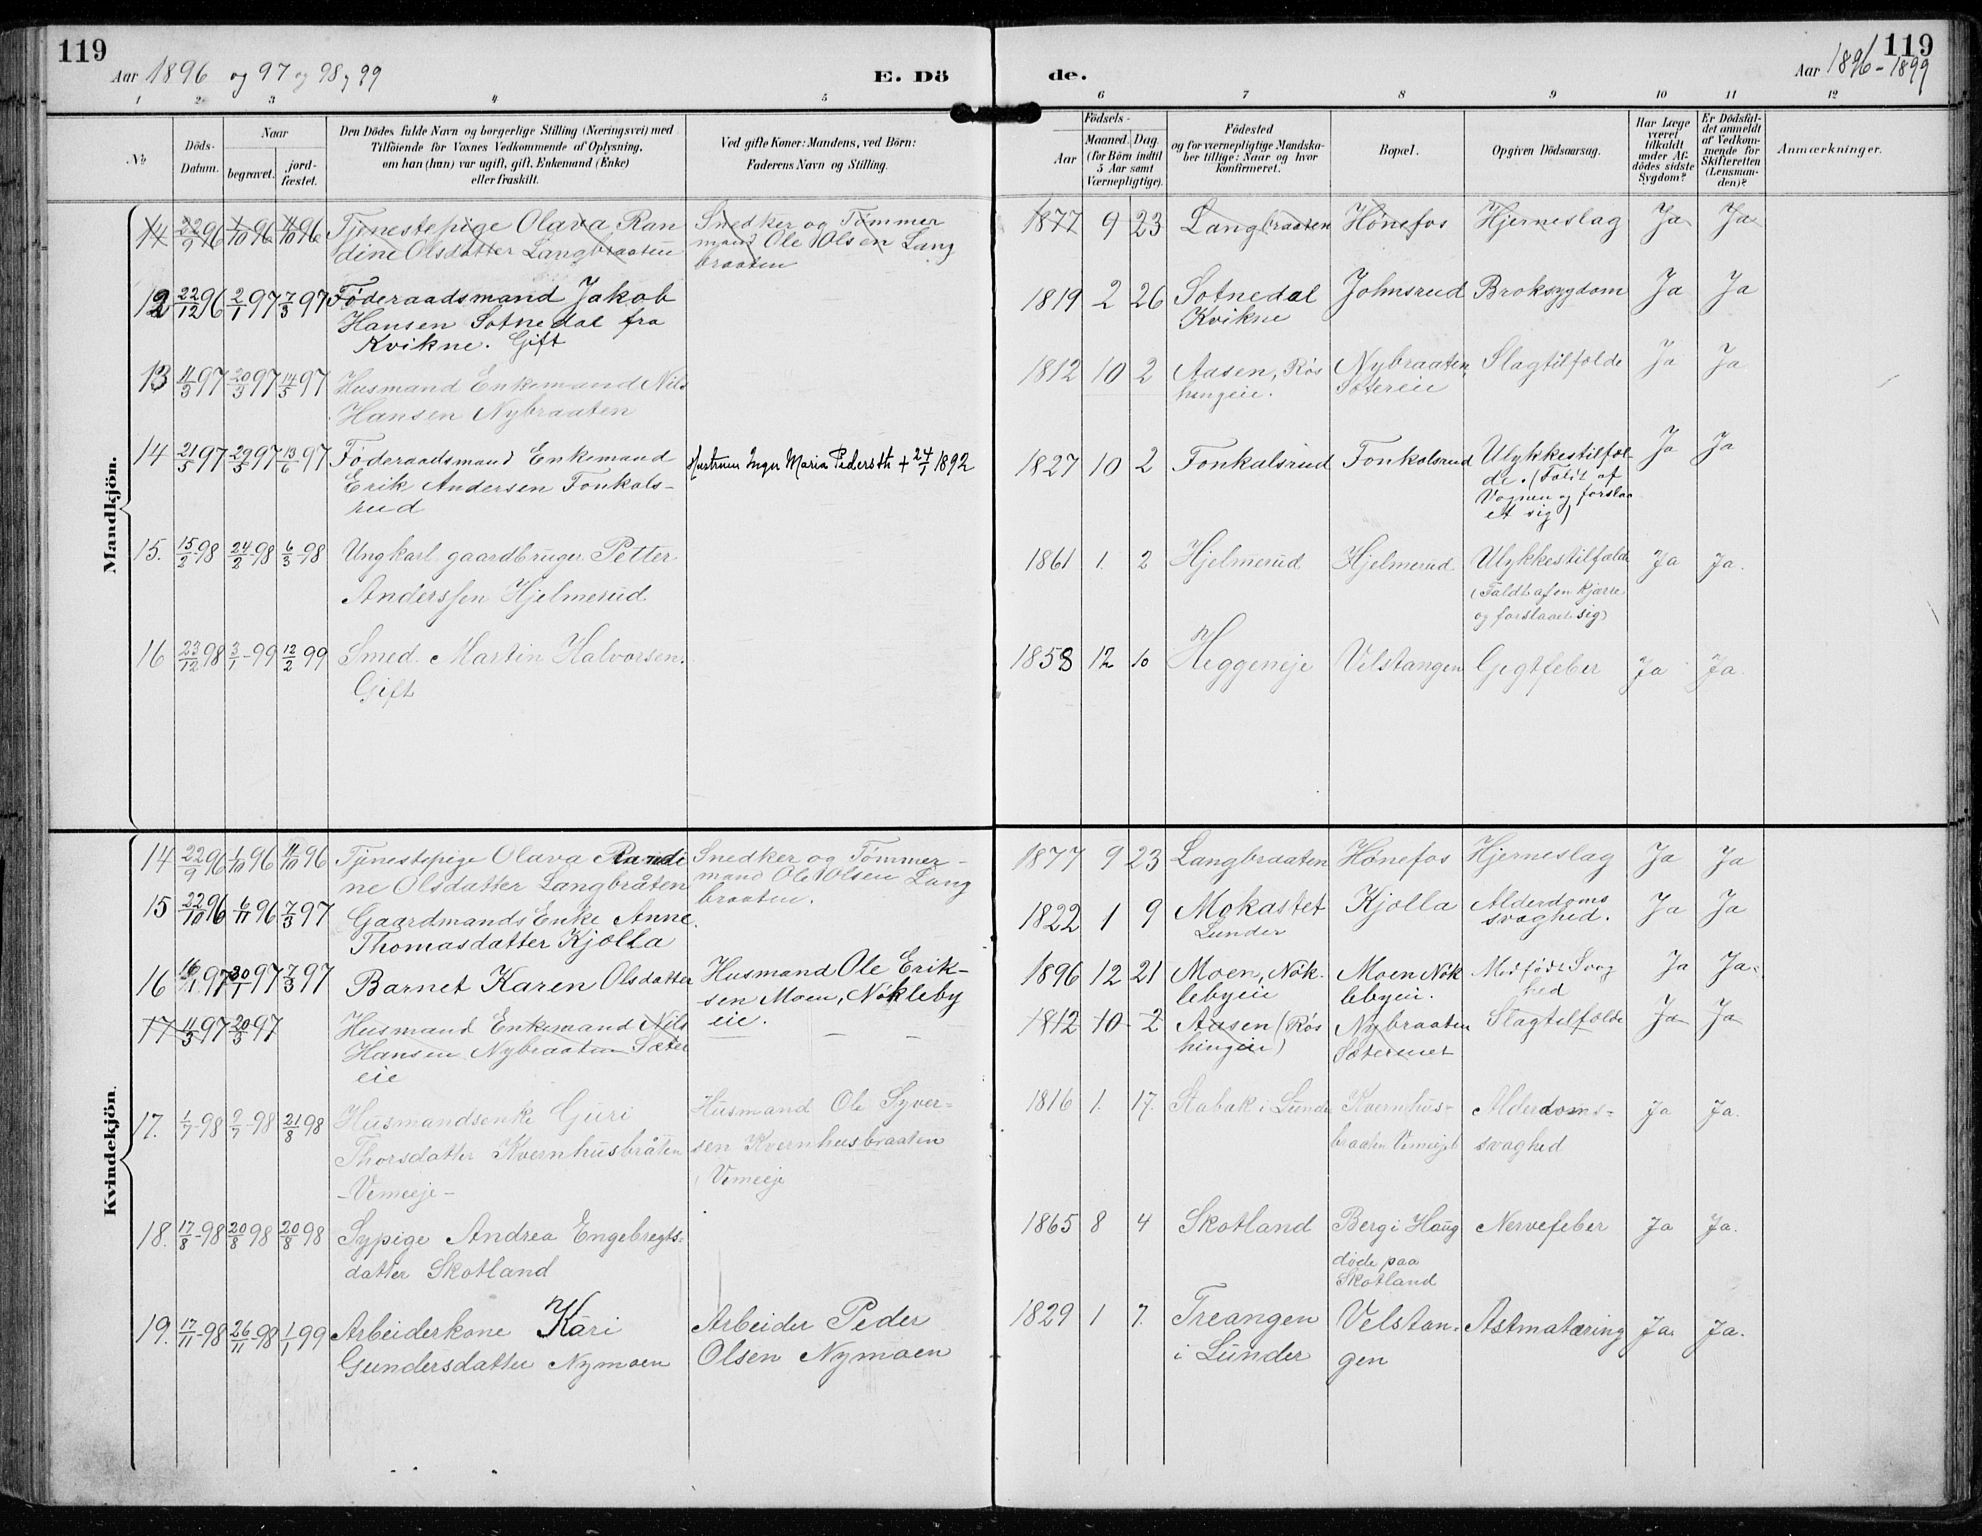 119
Aar 1896 og 97 og 98 og 99
E. Dö
de.
Aar 1896-1899
119
1 2 3 4 5 6 7 8 9 10 11 12
No
Döds-
Datum.
Naar
begravet.
jord-
fæstet.
Den Dödes fulde Navn og borgerlige Stilling (Næringsvei) med
Tilföiende for Voxnes Vedkommende af Oplysning,
om han (hun) var ugift, gift, Enkemand (Enke)
eller fraskilt.
Ved gifte Koner: Mandens, ved Börn:
Faderens Navn og Stilling.
Födsels-
Aar
Maaned.
Dag.
(for Börn indtil
5 Aar samt
Værnepligtige).
Födested
og for værnepligtige Mandska-
ber tillige: Naar og hvor
konfirmeret.
Bopæl.
Opgiven Dödsaarsag.
Har Læge
været
tilkaldt
under Af-
dödes sidste
Sygdom?
Er Dödsfal-
det anmeldt
af Vedkom-
mende for
Skifteretten
(Lensman-
den)?
Anmærkninger.
Mandkjön.
14 22/9 96 1/10 96 11/10 96 Tjenestepige Olava Ran
dine Olsdatter Langbraaten
Snedker og Tømmer
mand Ole Olsen Lang
braaten
1877 9 23 Langbraaten Hønefos Hjerneslag Ja Ja
12 22/12 96 2/1 97 7/3 97 Føderaadsmand Jakob
Hansen Sotnedal fra
Kvikne. Gift
1819 2 26 Sotnedal
Kvikne
Johnsrud Broksygdom Ja Ja
13 11/3 97 20/3 97 14/5 97 Husmand Enkemand Nils
Hansen Nybraaten
1812 10 2 Aasen, Røs
hingeie.
Nybraaten
Sætereie
Slagtilfælde Ja Ja
14 21/5 97 29/5 97 13/6 97 Føderaadsmand Enkemand
Erik Andersen Fonkals-
rud
Hustruen Inger Maria Pedersdtr + 24/1 1892
1827 10 2 Fonkalsrud Fonkalsrud Ulykkestilfæl
de. (Faldt af
Vognen og forslaa
et sig)
Ja Ja
15. 15/2-98 24/2-98 6/3-98 Ungkarl gaardbruger Petter
Anderssen Hjelmerud
1861 1. 2 Hjelmerud Hjelmerud Ulykkestilfælde
(Faldt af en kjærre
og forslaaet sig)
Ja Ja.
16 23/12 98 3/1-99 12/2 99 Smed Martin Halvorsen.
Gift
1858 12 10 Heggeneje Velstangen Gigtfeber Ja Ja.
Kvindekjön.
14 22/9 96 1/10 96 11/10 96 Tjenestepige Olava Randi
ne Olsdatter Langbråten
Snedker og Tømmer-
mand Ole Olsen Lang
braaten.
1877 9 23 Langbraaten Hønefos Hjerneslag Ja Ja
15 22/10 96 6/11 96 7/3 97 Gaardmands Enke Anne
Thomasdatter Kjølla
1822 1 9 Mokastet
Lunder
Kjølla Alderdoms
svaghed.
Ja Ja
16 16/1 97 30/1 97 7/3 97 Barnet Karen Olsdatter
Husmand Ole Erik-
sen Moen, Nøkleby
eie.
1896 12 21 Moen, Nøk-
lebyeie
Moen Nøk
lebyeie.
Medfødt Svag
hed
Ja Ja.
17 4/3 97 20/3 97 Husmand Enkemand Nils
Hansen Nybraaten Sæter
eie
— — —
1812 10 2 Aasen (Røs
hingeie)
Nybraaten
Slagtilfælde Ja Ja
17. 1/7-98 9/7-98 21/8 98 Husmandsenke Guri
Thorsdatter Kvernhusbråten
- Vemeeje -
Husmand Ole Syver-
sen Kvernhusbraaten
Vemeeje
1816 1. 17. Stabæk i Lunder Kvernhus-
braaten Vemeejet
Alderdoms-
svaghed
Ja Ja.
18. 17/8-98 20/8 98 20/8 98 Sypige Andrea Engebregts-
datter Skotland
1865 8 4 Skotland Berg i Haug
døde paa
Skotland
Nervefeber Ja Ja.
19. 17/11-98 26/11-98 1/1 99 Arbeiderkone Kari
Gundersdatter Nymoen
Arbeider Peder
Olsen Nymoen
1829 1 7. Treangen
i Lunder
Velstan-
gen
Astmatæring Ja. Ja.